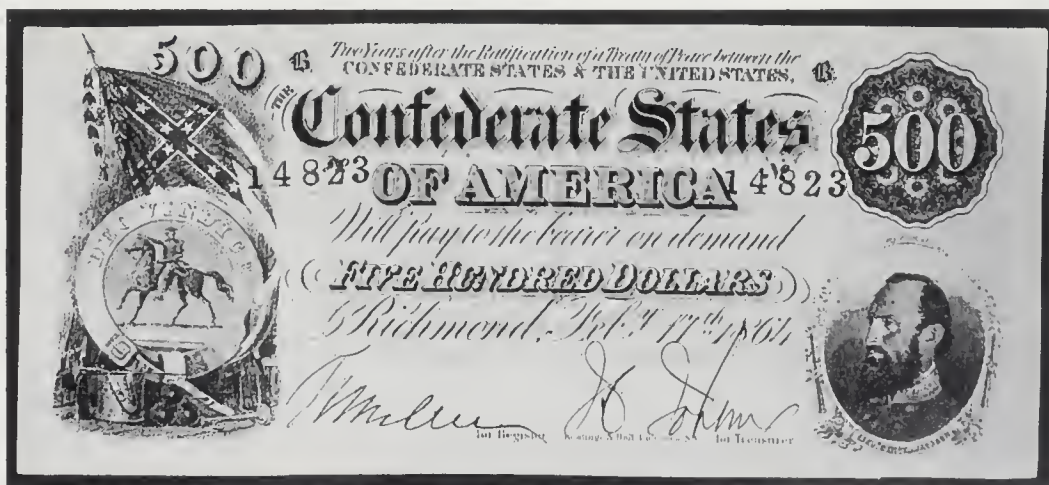 500
Two Years after the Ratification of a Treaty of Peace between the
CONFEDERATE STATES & THE UNITED STATES,
THE
Confederate States
500
14823 OF AMERICA 14823
Will pay to the bearer on demand
DEO VINDICE
FIVE HUNDRED DOLLARS
Richmond, Feb.y 17th 1864
for Register
for Treasurer